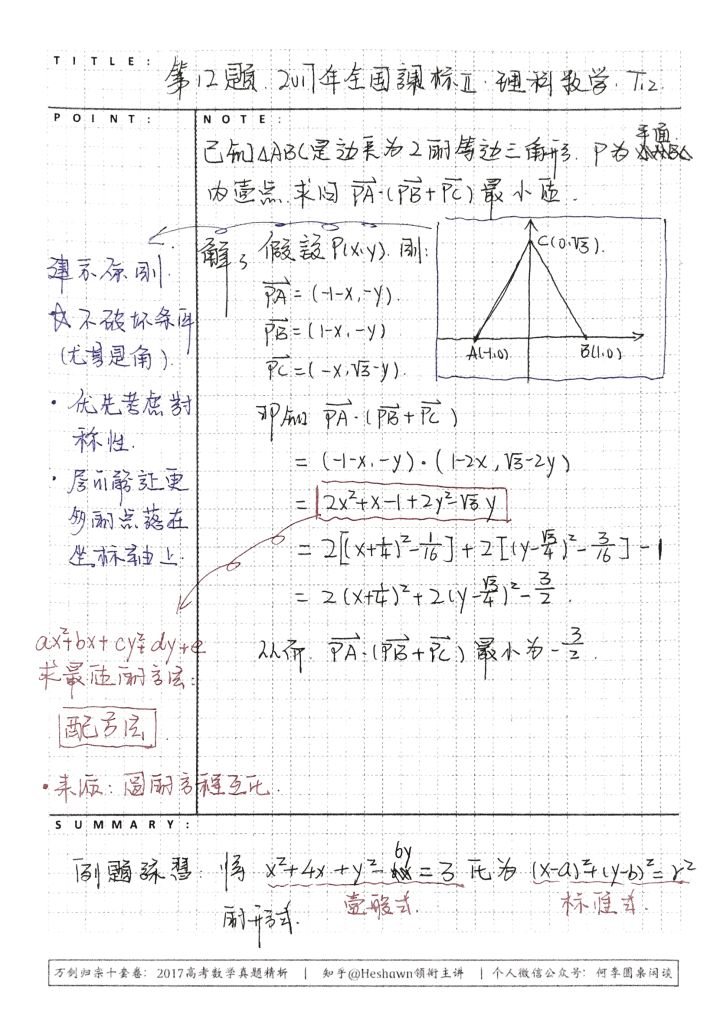 TITLE:
第12题. 2017年全国課标Ⅱ·理科数学. T12
POINT:
NOTE:
已知△ABC是边长为2的等边三角形. P为平面
内壹点. 求 PA·(PB+PC) 最小值.
解: 假設 P(x,y). 則:
PA = (-1-x, -y).
PB = (1-x, -y)
PC = (-x, √3-y).
C(0,√3)
A(-1,0)
B(1,0)
即知 PA·(PB+PC)
= (-1-x, -y)·(1-2x, √3-2y)
= 2x²+x-1+2y²-√3y
= 2[(x+1/4)²-1/16]+2[(y-√3/4)²-3/16]-1
= 2(x+1/4)²+2(y-√3/4)²-3/2.
从而. PA·(PB+PC) 最小为-3/2.
建系原則.
不破坏条件
(尤其是角).
· 优先考虑對
称性.
· 尽可能让更
多的点落在
坐标軸上.
ax²+bx+cy²+dy+e
求最值的方法:
配方法.
· 本质: 圆的方程互化.
SUMMARY:
例题練習: 将 x²+4x+y²-6y=3 化为 (x-a)²+(y-b)²=r²
壹般式.
标准式.
的形式.
万剑归宗十套卷: 2017高考数学真题精析 | 知乎@Heshawn领衔主讲 | 个人微信公众号: 何季圆桌闲谈